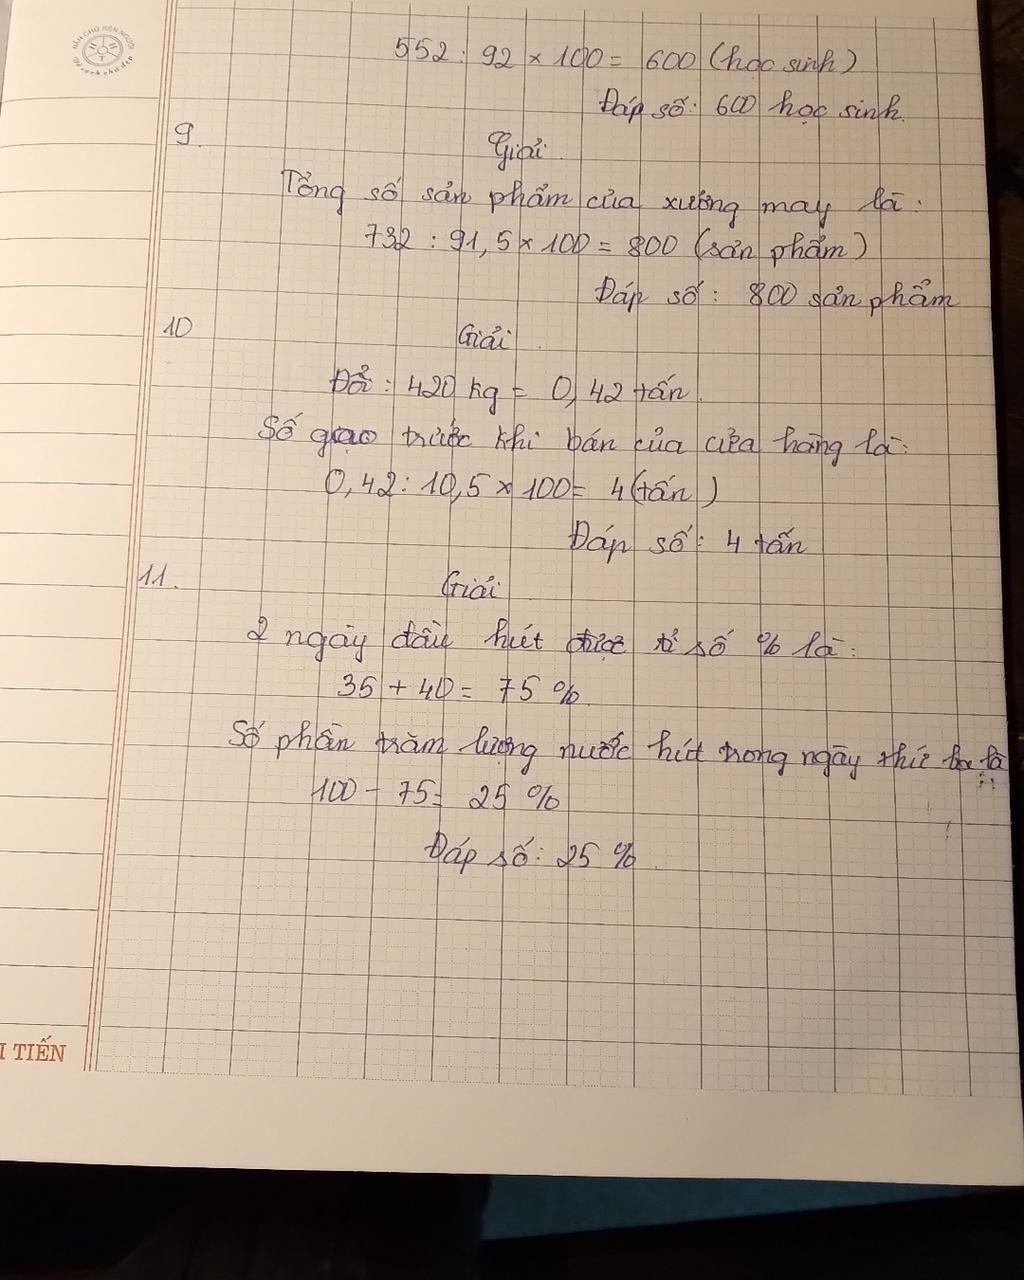 552 : 92 x 100 = 600 (học sinh)
Đáp số: 600 học sinh.
9.
Giải
Tổng số sản phẩm của xưởng may là:
732 : 91,5 x 100 = 800 (sản phẩm)
Đáp số: 800 sản phẩm
10
Giải
Đổi: 420 kg = 0,42 tấn.
Số gạo trước khi bán của cửa hàng là:
0,42 : 10,5 x 100 = 4 (tấn)
Đáp số: 4 tấn
11.
Giải
2 ngày đầu hút được tỉ số % là:
35 + 40 = 75 %.
Số phần trăm lượng nước hút trong ngày thứ ba là:
100 - 75 = 25 %
Đáp số: 25 %.
I TIẾN